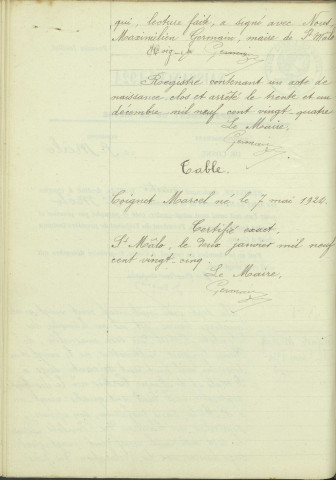 qui, lecture faite, a signé avec Nous,
Maximilien Germain, maire de St Mâlo
Coignet Germain
Registre contenant un acte de
naissance clos et arrêté le trente et un
décembre mil neuf cent vingt quatre
Le Maire,
Germain
Table.
Coignet Marcel né le 7 mai 1924.
Certifié exact.
St Mâlo, le deux janvier mil neuf
cent vingt-cinq.
Le Maire,
Germain